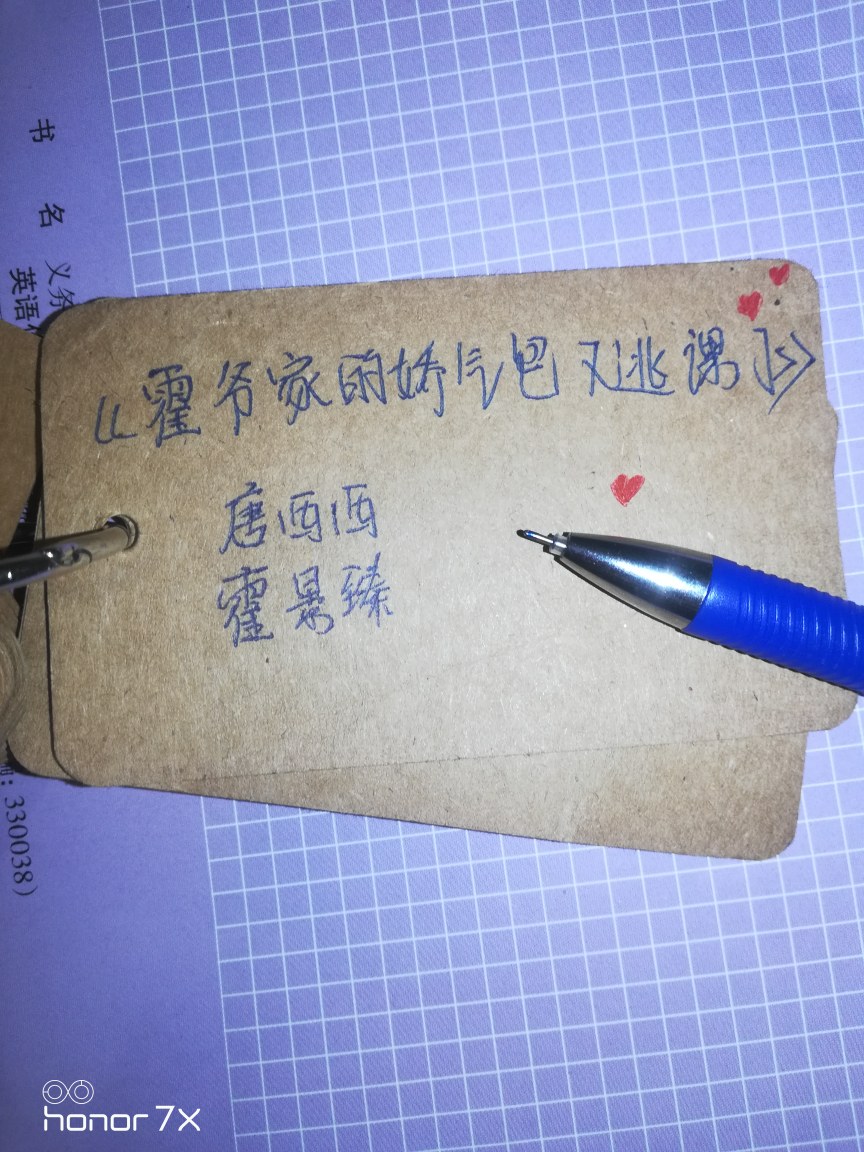 《霍爷家的娇气包又逃课了》
唐西西
霍景臻
书 名 义务
英语
330038）
honor 7X